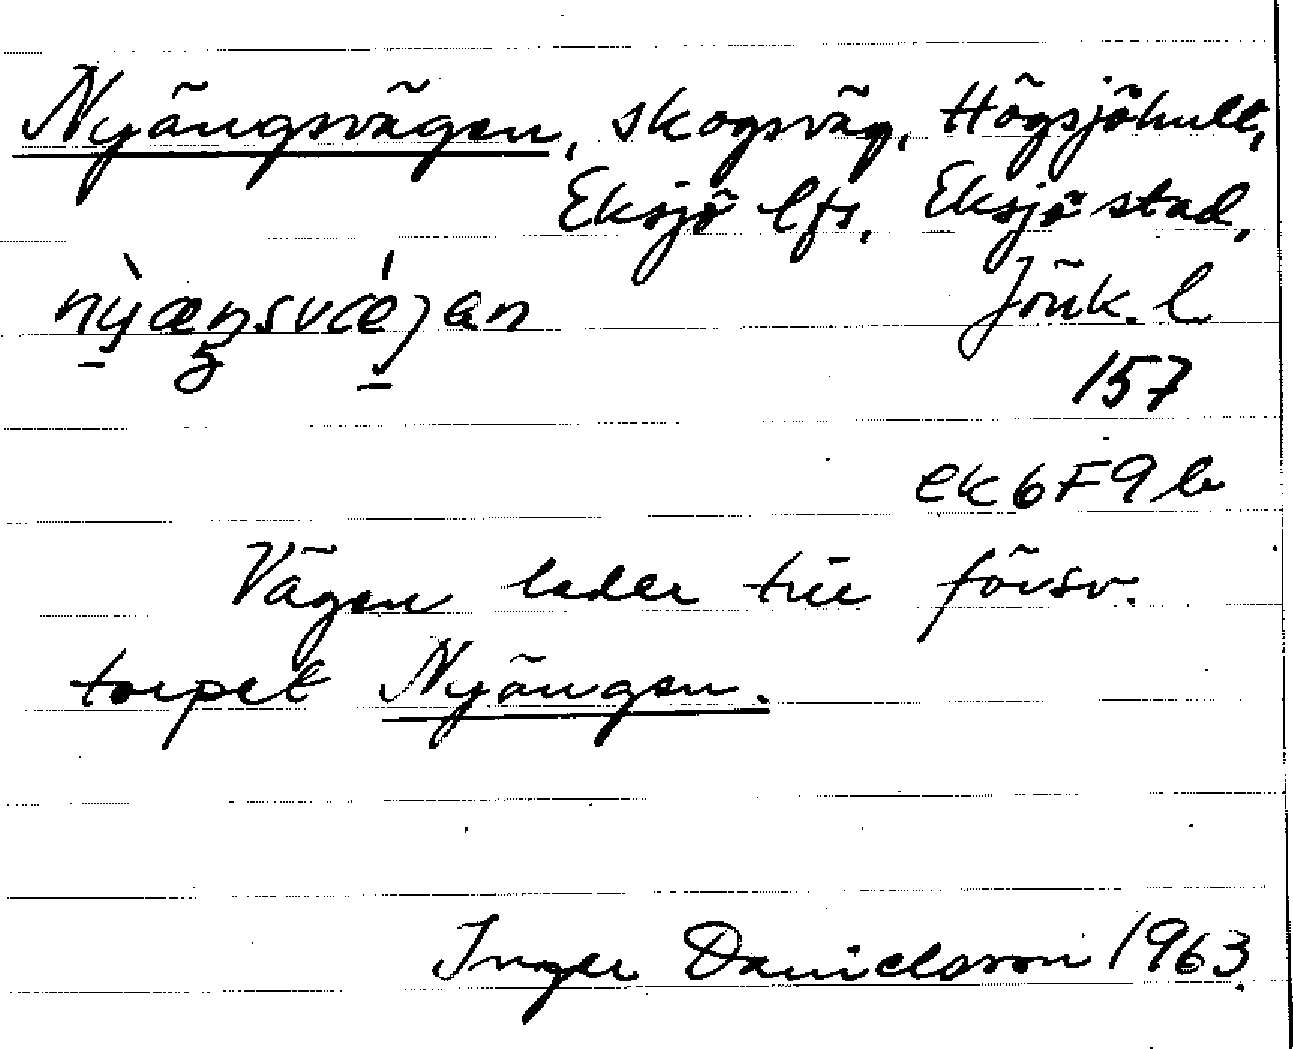 Nyängsvägen, skogsväg, Högsjöhult,
Eksjö lfs, Eksjö stad,
nỳæŋsvǽȷan Jönk. l
157
ek 6F9b
Vägen leder till försv.
torpet Nyängen.
Inger Danielsson 1963.